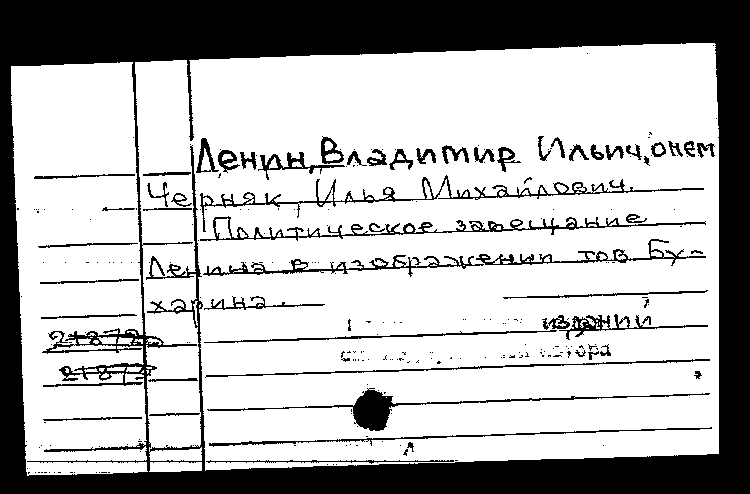 Ленин, Владимир Ильич, о нем
Черняк, Илья Михайлович.
Политическое завещание
Ленина в изображении тов Бу-
харина.
изданий
21872
21873